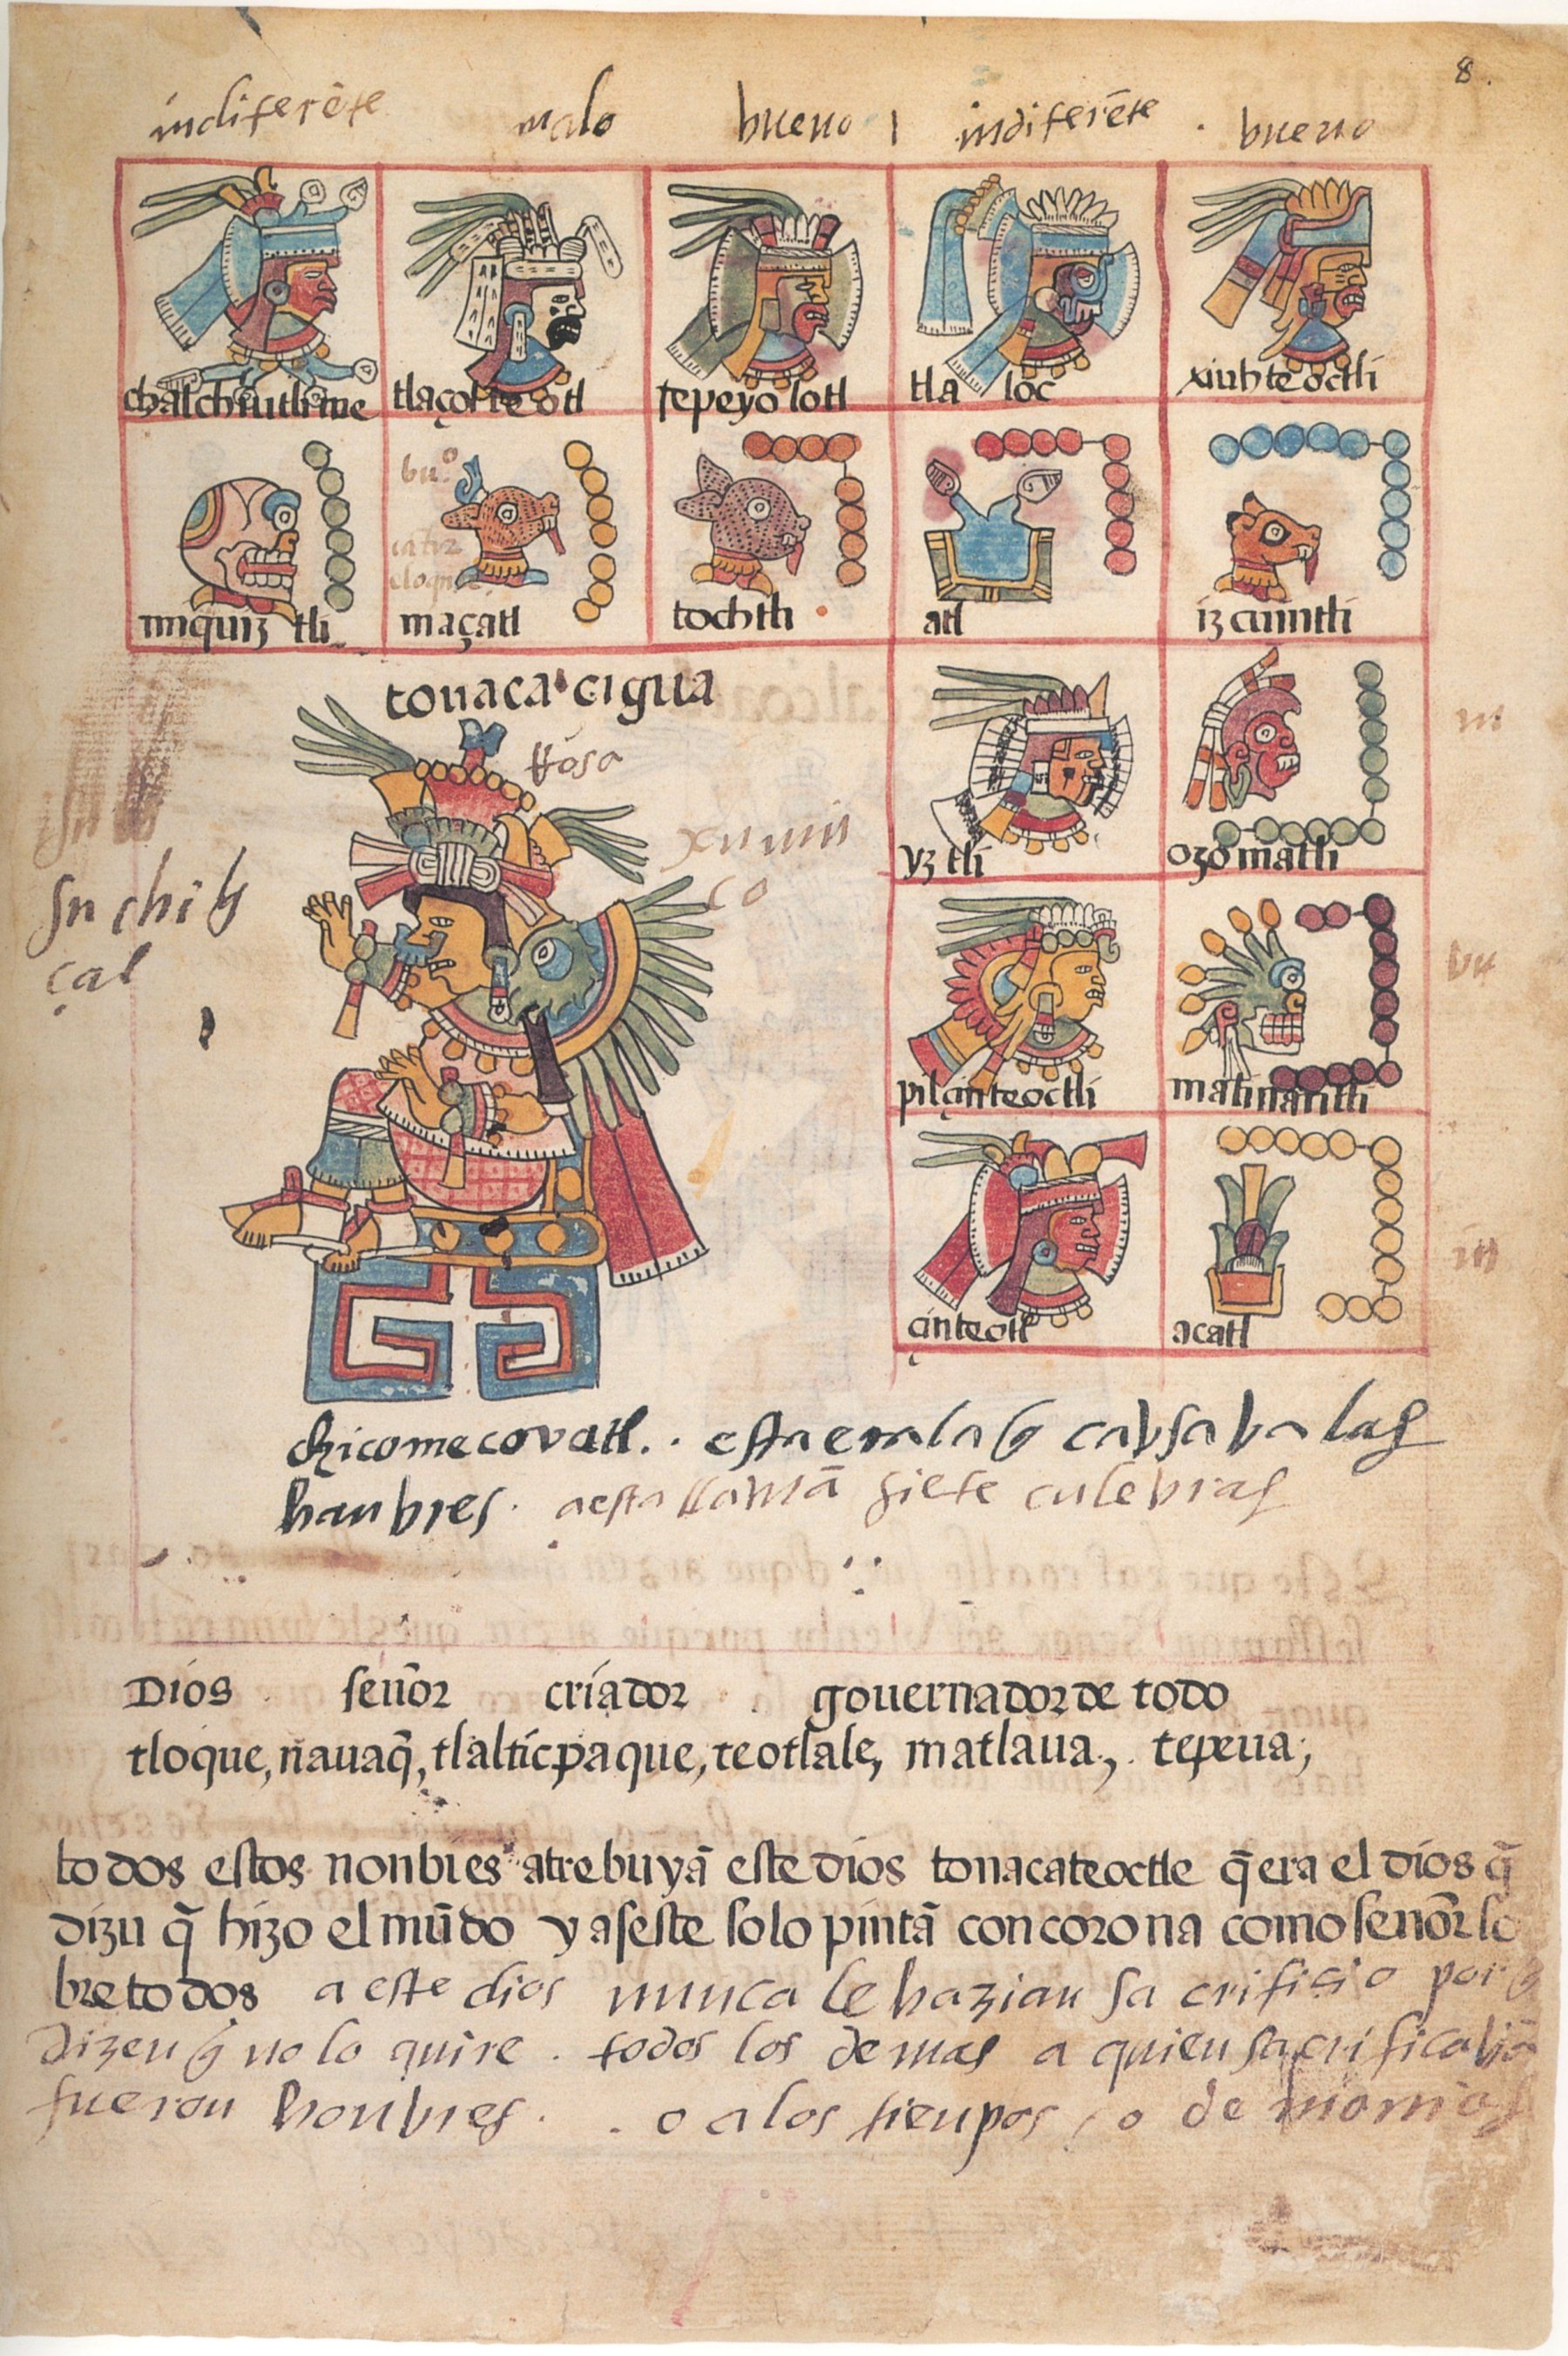 8.
indiferēte malo bueno indiferēte . bueno
chalchiutli me tlaçolteotl tepeyolotl tla loc xiuhteoctli
bu.º
miquiz tli maçatl tochtli atl izcuintli
tonaca cigua
yztli ozomatli
Sn chi
çal
bu
pilçinteoctli malinantli
çinteotl acatl
chicomecovatl. . esta era la q̄ cabsaba las
hanbres. a esta llamā siete culebras
Dios señor criador governador de todo
tloque, navaq̄, tlalticpaque, teotlale, matlaua, . tepeua,
todos estos nonbres atrebuyā este dios tonacateoctle q̄ era el dios q̄
dizu q̄ hizo el mūdo y aseste solo pintā con corona como señor so
bre todos a este dios nunca le hazian sacrificio porq̄
dizen q̄ no lo quire . todos los demas a quien sacrificabā
fueron honbres . . o a los tienpos o demonios